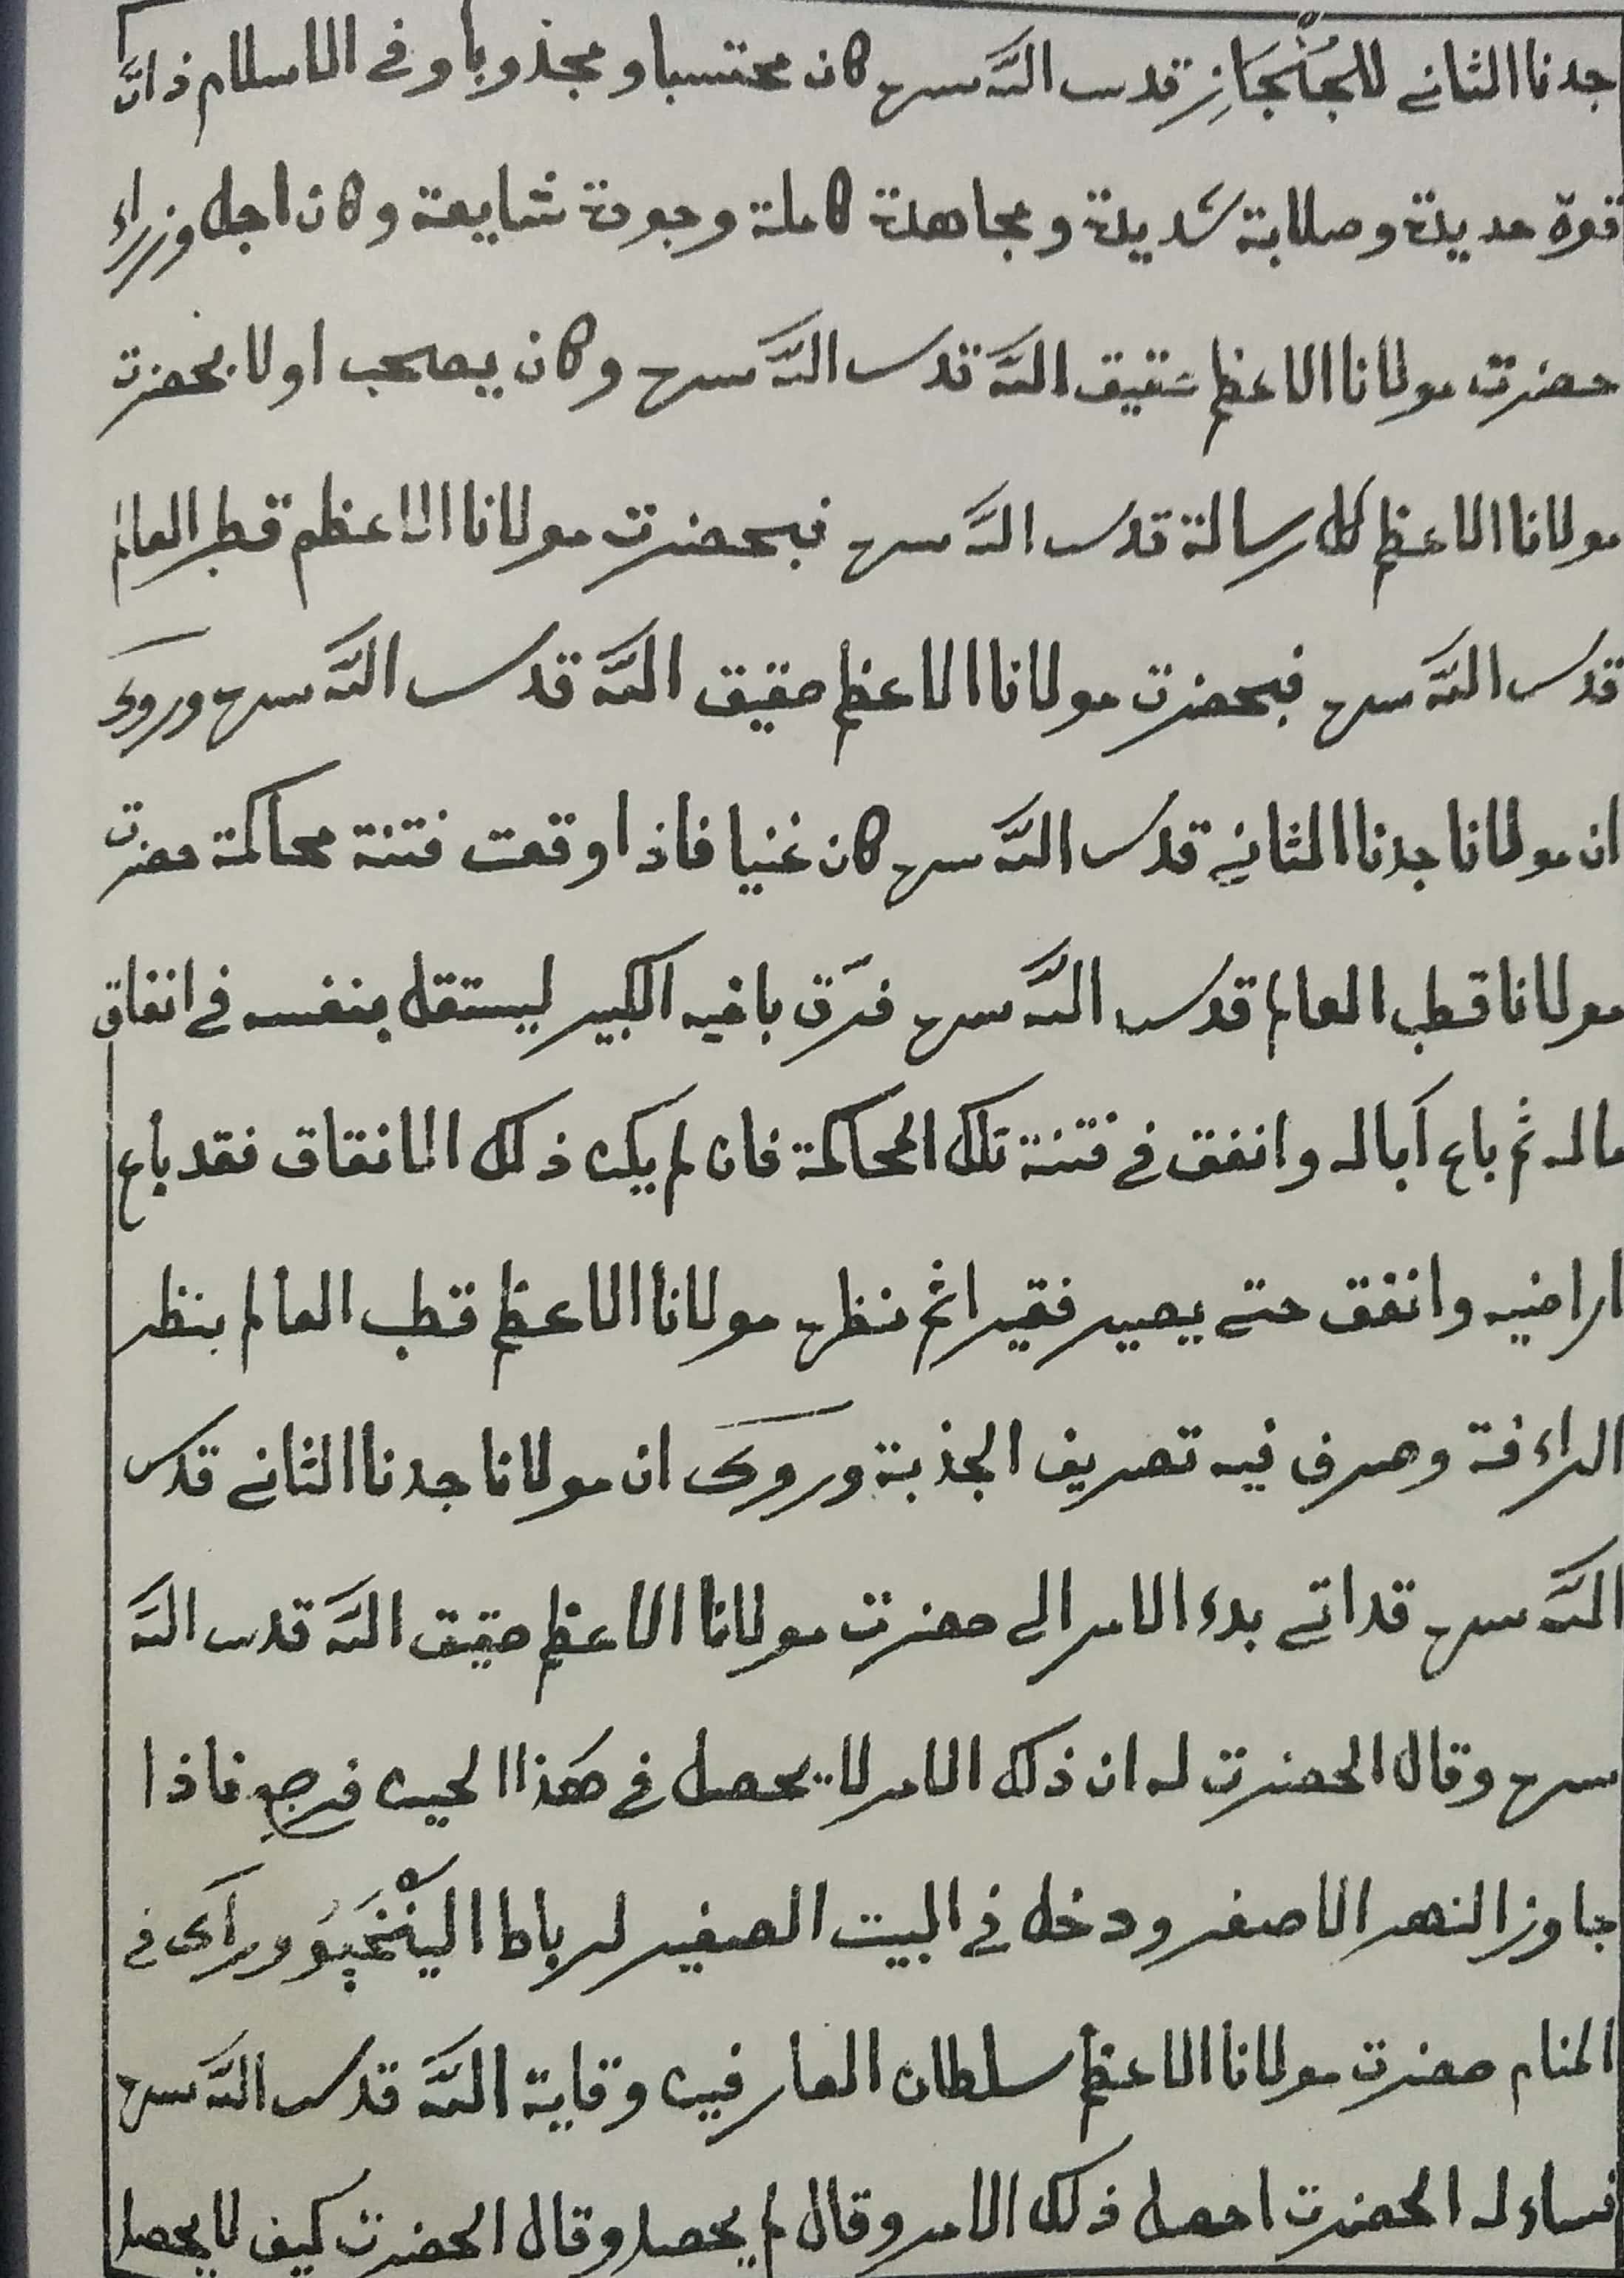 جدنا الثانے للجُنْجَانِز قدس اللّٰه سره كان محتسبا و مجذوبا و فے الاسلام ذا انّ
قوة حديدة و صلابة شديدة و مجاهدة كاملة و جودة شايعة و كان اجل وزراء
حضرت مولانا الاعظم حقيق اللّٰه قدس اللّٰه سره و كان يصحب اولا بحضرت
مولانا الاعظم كل رسالة قدس اللّٰه سره فبحضرت مولانا الاعظم قطب العالم
قدس اللّٰه سره فبحضرت مولانا الاعظم حقيق اللّٰه قدس اللّٰه سره و روى
ان مولانا جدنا الثانے قدس اللّٰه سره كان غنيا فاذا وقعت فتنة محاكمة حضرت
مولانا قطب العالم قدس اللّٰه سره فرّق باخيه الكبير ليستقل بنفسه فے انفاق
ماله ثم باع آباله و انفق فے فتنة تلك المحاكمة فان لم يكن ذلك الانفاق فقد باع
اراضيه و انفق حتے يصير فقيرا ثم نظره مولانا الاعظم قطب العالم بنظر
الراءفة و صرف فيه تصريف الجذبة و روى ان مولانا جدنا الثانے قدس
اللّٰه سره قد اتے بدء الامر الے حضرت مولانا الاعظم حقيق اللّٰه قدس اللّٰه
سره و قال الحضرت له ان ذلك الامر لا يحصل فے هذا الحين فرجع فاذا
جاوز النهر الاصفر و دخل فے البيت الصغير لرباط و رآى فے
المنام حضرت مولانا الاعظم سلطان العارفين وقاية اللّٰه قدس اللّٰه سره
فساءله الحضرت احصل ذلك الامر و قال لم يحصل و قال الحضرت كيف لا يحصل